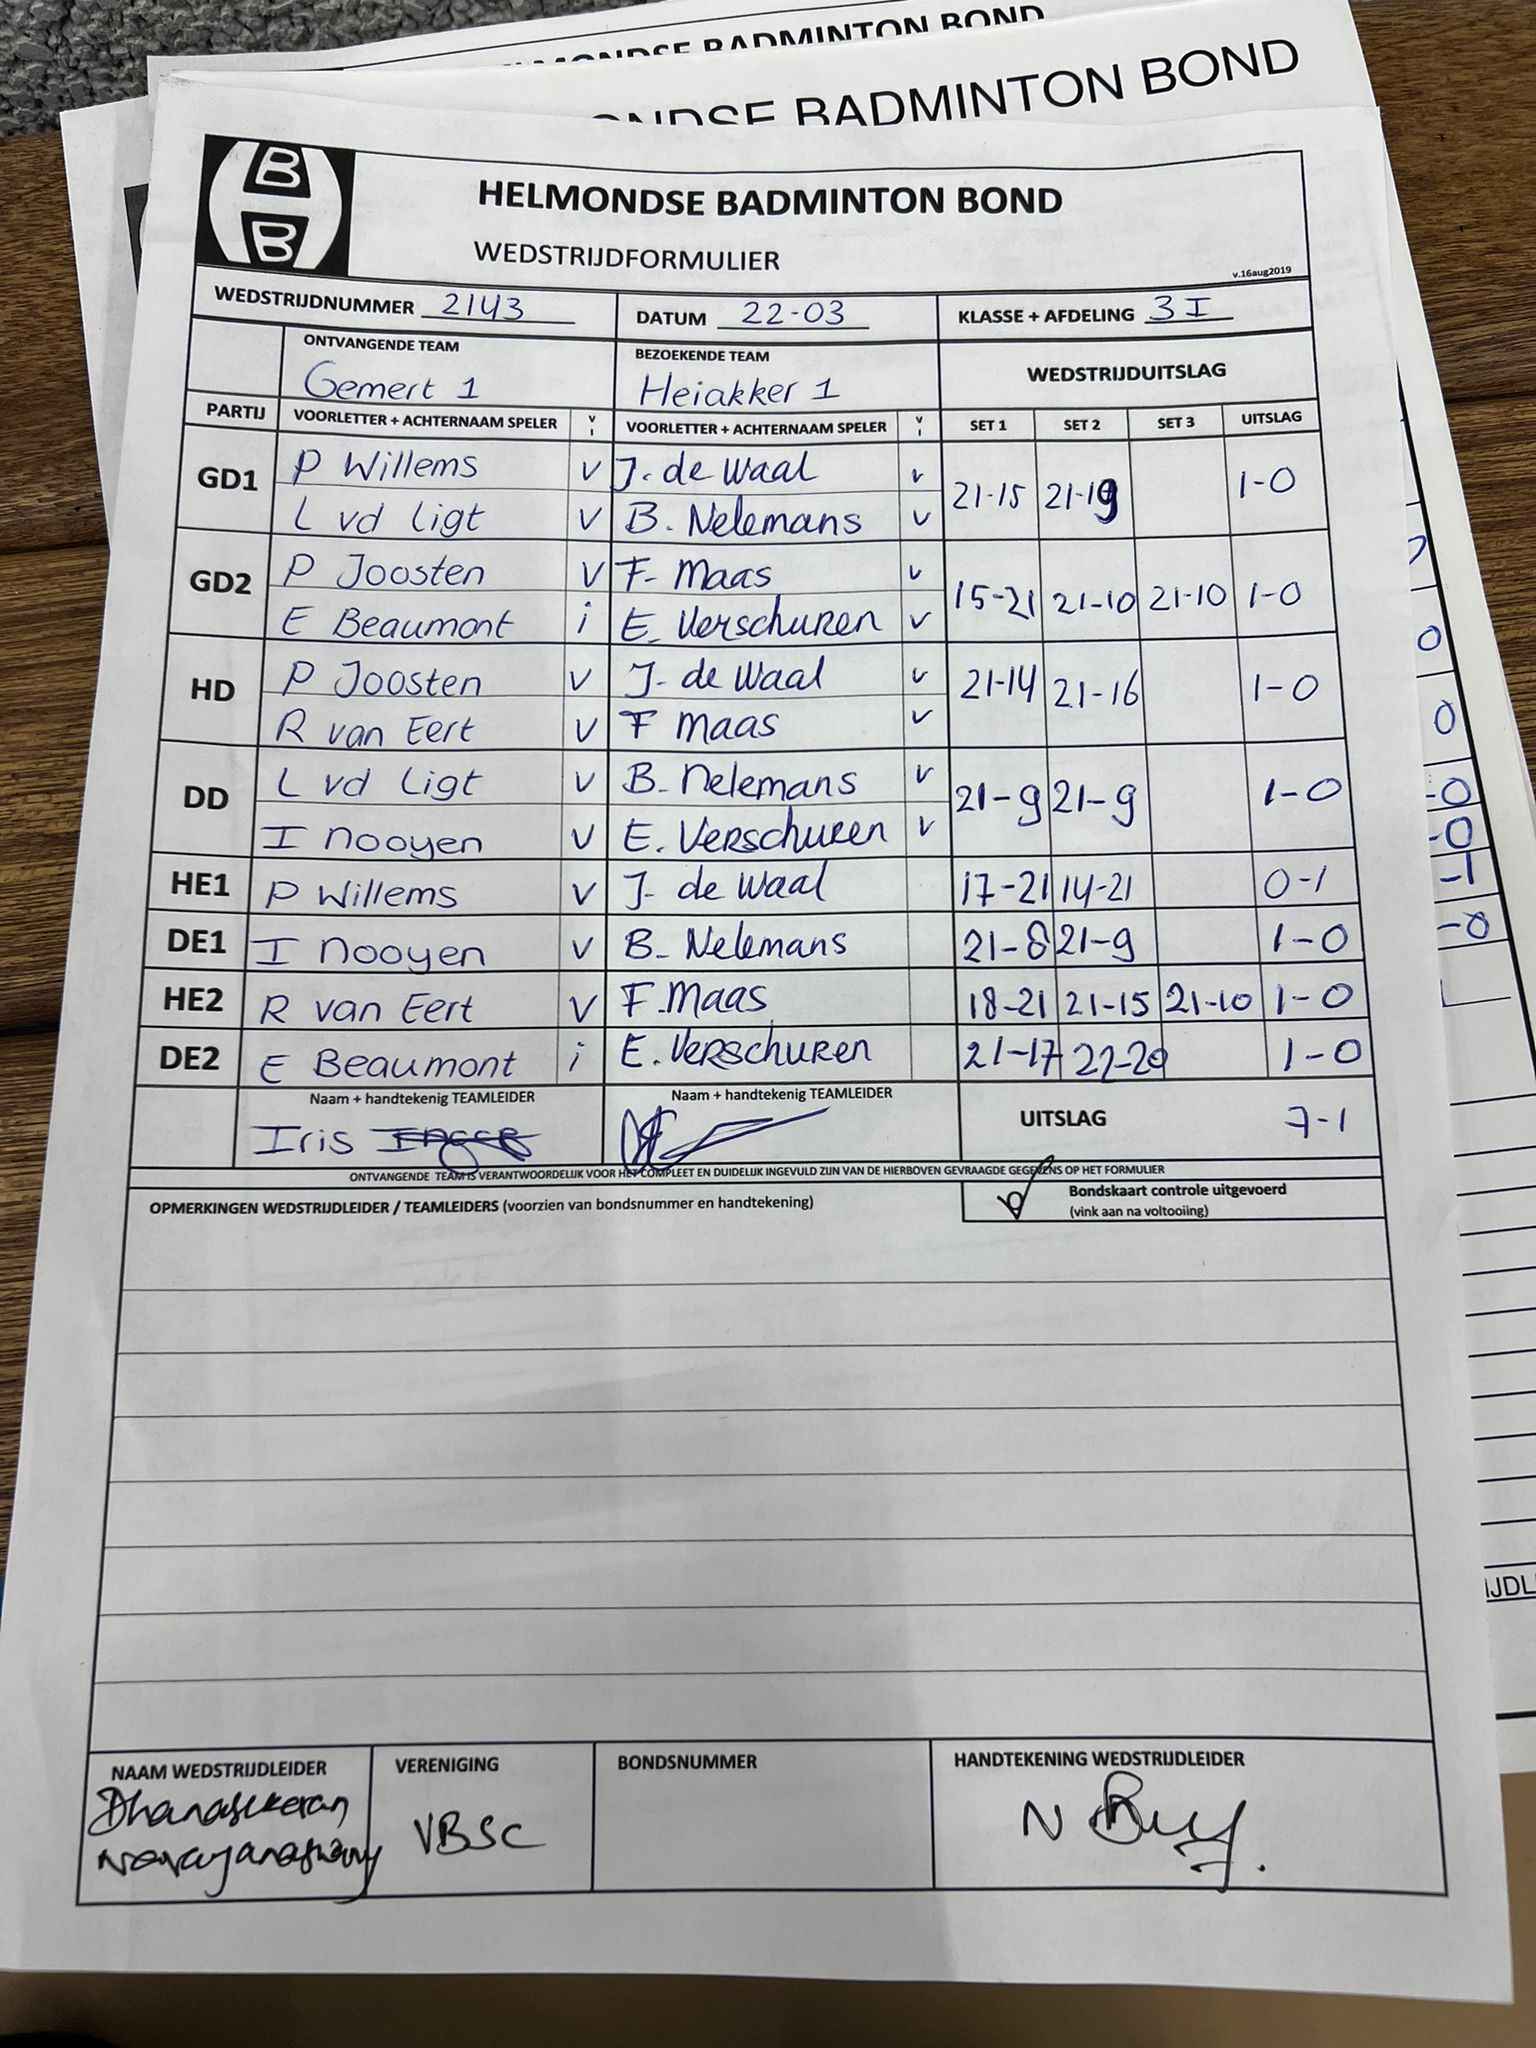 HELMONDSE BADMINTON BOND
ONDSE BADMINTON BOND
B
B
HELMONDSE BADMINTON BOND
WEDSTRIJDFORMULIER
v.16aug2019
WEDSTRIJDNUMMER 2143 DATUM 22-03 KLASSE + AFDELING 3 I
ONTVANGENDE TEAM BEZOEKENDE TEAM WEDSTRIJDUITSLAG
Gemert 1 Heiakker 1
PARTIJ VOORLETTER + ACHTERNAAM SPELER v i VOORLETTER + ACHTERNAAM SPELER v i SET 1 SET 2 SET 3 UITSLAG
P Willems v J. de Waal v
GD1 21-15 21-19 1-0
L vd Ligt v B. Nelemans v
P Joosten v F. Maas v
GD2 15-21 21-10 21-10 1-0
E Beaumont i E. Verschuren v
P Joosten v J. de Waal v
HD 21-14 21-16 1-0
R van Eert v F Maas v
L vd Ligt v B. Nelemans v
DD 21-9 21-9 1-0
I Nooyen v E. Verschuren v
HE1 P Willems v J. de Waal 17-21 14-21 0-1
DE1 I Nooyen v B. Nelemans 21-8 21-9 1-0
HE2 R van Eert v F. Maas 18-21 21-15 21-10 1-0
DE2 E Beaumont i E. Verschuren 21-17 22-20 1-0
Naam + handtekenig TEAMLEIDER Naam + handtekenig TEAMLEIDER UITSLAG 7-1
Iris
ONTVANGENDE TEAM IS VERANTWOORDELIJK VOOR HET COMPLEET EN DUIDELIJK INGEVULD ZIJN VAN DE HIERBOVEN GEVRAAGDE GEGEVENS OP HET FORMULIER
OPMERKINGEN WEDSTRIJDLEIDER / TEAMLEIDERS (voorzien van bondsnummer en handtekening)
Bondskaart controle uitgevoerd
(vink aan na voltooiing)
NAAM WEDSTRIJDLEIDER VERENIGING BONDSNUMMER HANDTEKENING WEDSTRIJDLEIDER
Dhanasekeran
Narayanaswamy VBSC
0
0
-0
-0
-1
-0
IJDL